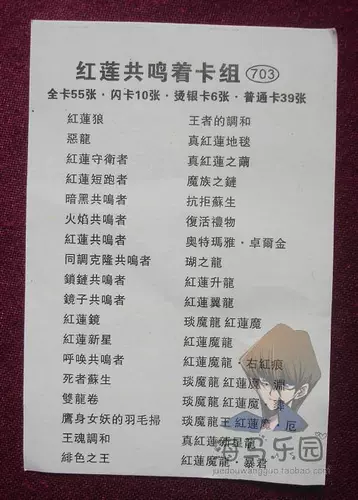 红莲共鸣着卡组 703
全卡55张·闪卡10张·烫银卡6张·普通卡39张
紅蓮狼
惡龍
紅蓮守衛者
紅蓮短跑者
暗黑共鳴者
火焰共鳴者
紅蓮共鳴者
同調克隆共鳴者
鎖鏈共鳴者
鏡子共鳴者
紅蓮鏡
紅蓮新星
呼喚共鳴者
死者蘇生
雙龍卷
鷹身女妖的羽毛掃
王魂調和
緋色之王
王者的調和
真紅蓮地毯
真紅蓮之繭
魔族之鏈
抗拒蘇生
復活禮物
奧特瑪雅·卓爾金
瑚之龍
紅蓮升龍
紅蓮翼龍
琰魔龍 紅蓮魔
紅蓮魔龍
紅蓮魔龍·右紅痕
琰魔龍 紅蓮魔·淵
琰魔龍 紅蓮魔·
琰魔龍王 紅蓮魔·厄
真紅蓮新星龍
紅蓮魔龍·暴君
海马乐园
yiedouwang.taobao.com